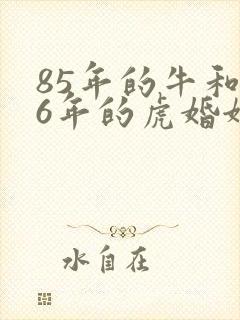 85年的牛和
6年的虎婚
水自在